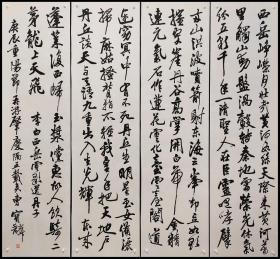 西岳崢嶸何壯哉黃河如絲天際來黃河萬
里觸山動盤渦轂轉秦地雷榮光休氣
紛五彩千年一清聖人在巨靈咆哮擘
兩山洪波噴箭射東海三峰却立如欲
摧翠崖丹谷高掌開白帝金精
運元氣石作蓮花雲作臺雲臺閣道
連窈冥中有不死丹丘生明星玉女備灑
掃麻姑搔背指爪輕我皇手把天地户
丹丘談天與天語九重出入生光輝東來
蓬萊復西歸玉漿儻惠故人飲騎二
茅龍上天飛 李白西岳雲臺歌送丹丘子
庚辰重陽節